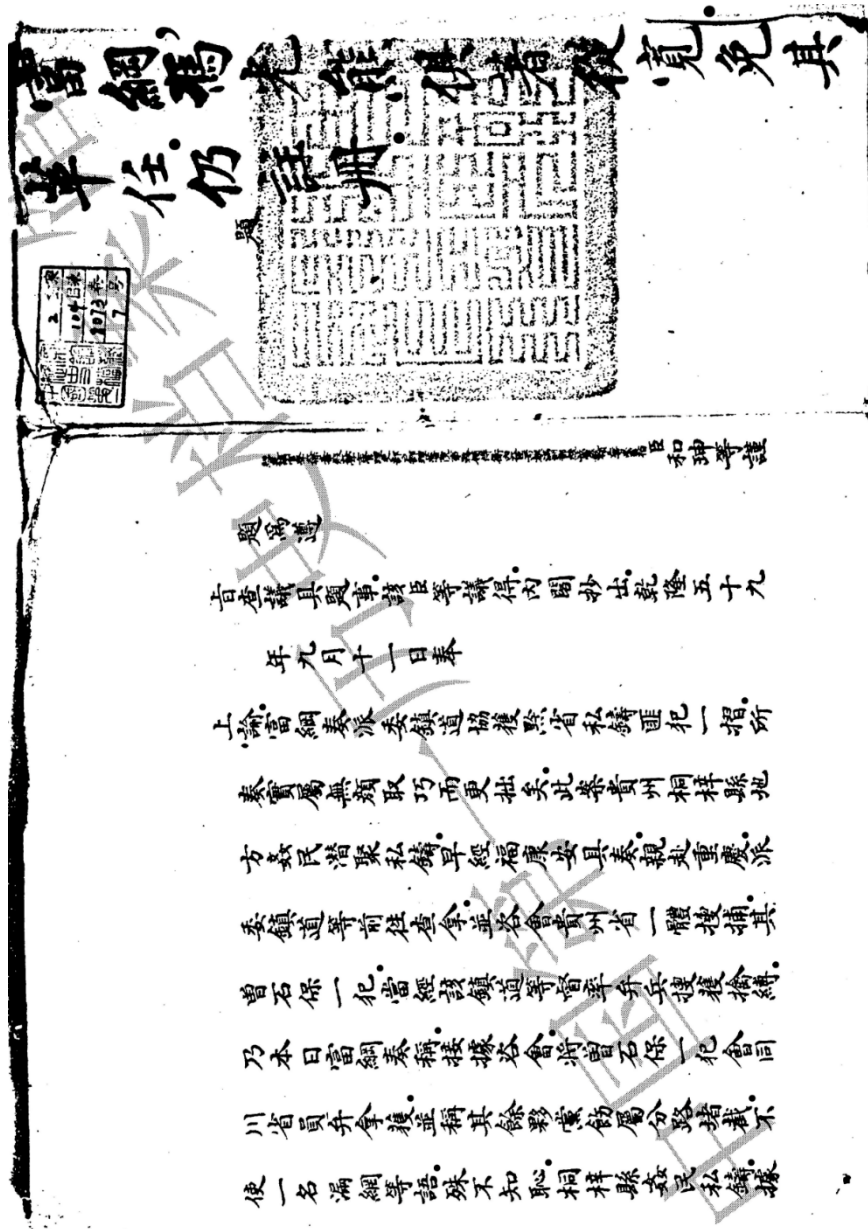 富綱馮光熊俱著從寬免其
革任仍註冊
題
臣和珅等謹
題為遵
旨查議具題事該臣等議得內閣抄出乾隆五十九
年九月十一日奉
上諭富綱奏派委鎮道協獲黔省私鑄匪犯一摺所
奏實屬無顏取巧而更拙矣此案貴州桐梓縣地
方姦民潛聚私鑄早經福康安具奏親赴重慶派
委鎮道等前往查拿並咨會貴州省一體搜捕其
曾石保一犯當經該鎮道等督率弁兵搜獲擒縛
乃本日富綱奏稱接據咨會將曾石保一犯會同
川省員弁拿獲並稱其餘夥黨飭屬分路堵截不
使一名漏網等語殊不知恥桐梓縣姦民私鑄據
中國第一歷史檔案館